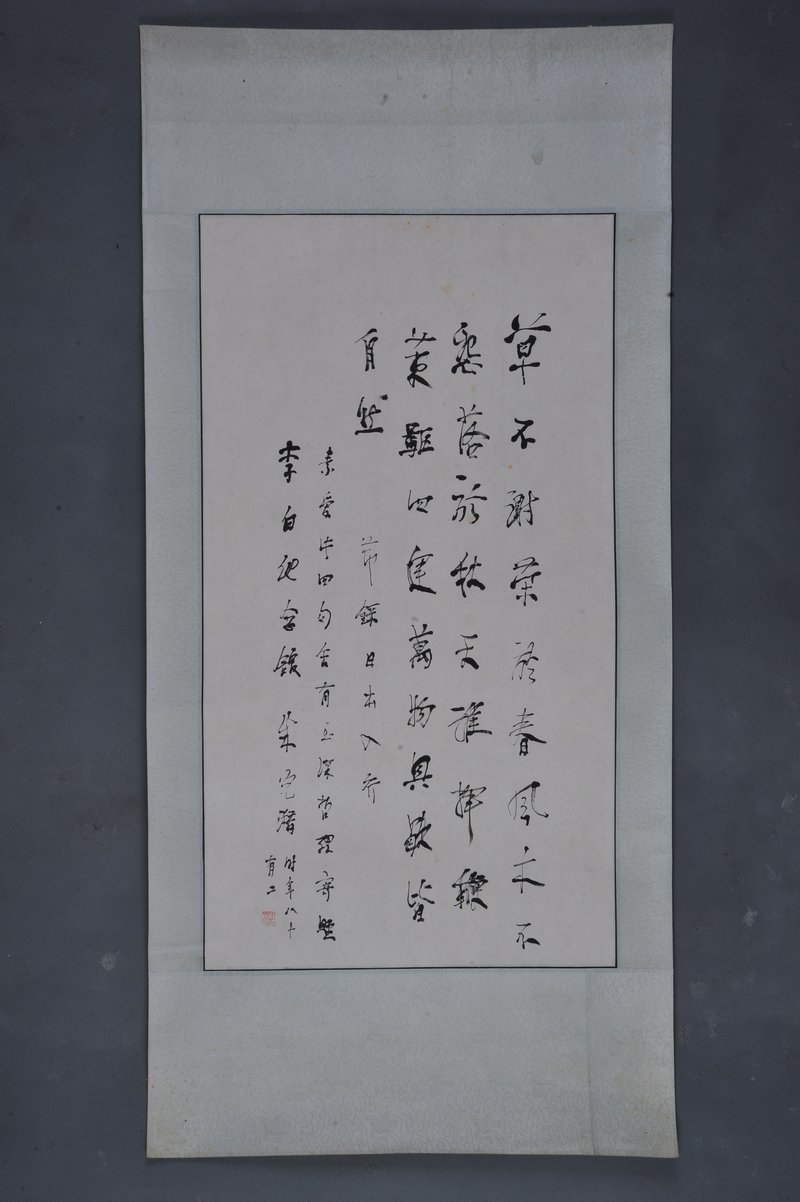 草不謝榮於春風木不
怨落於秋天誰揮鞭
策驅四運萬物興歇皆
自然 節錄日出入行
素愛此四句含有至深哲理寄題
李白紀念館 朱光潛 時年八十
有二